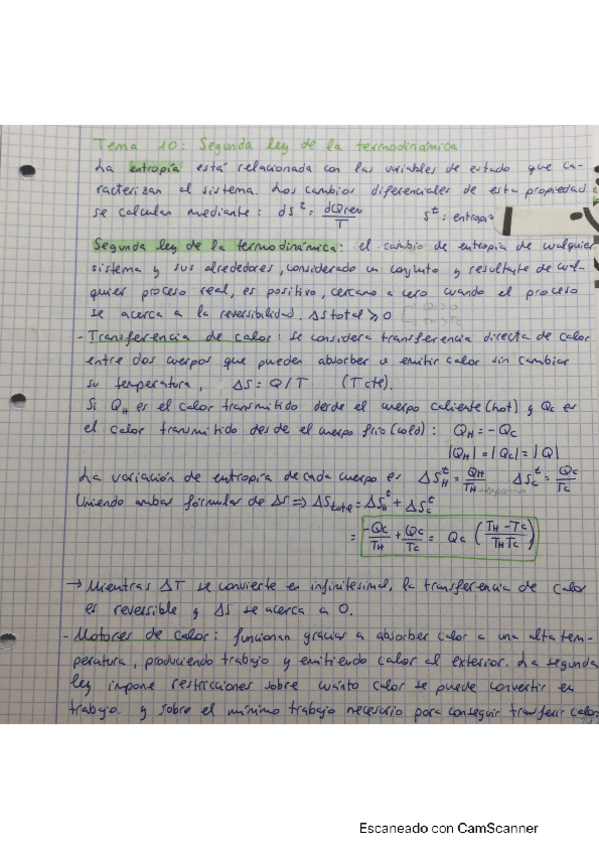 Tema 10: Segunda ley de la termodinámica
La entropía está relacionada con las variables de estado que ca-
racterizan al sistema. Los cambios diferenciales de esta propiedad
se calculan mediante: dSᵗ = dQrev / T    Sᵗ: entropía
Segunda ley de la termodinámica: el cambio de entropía de cualquier
sistema y sus alrededores, considerado en conjunto y resultante de cual-
quier proceso real, es positivo, cercano a cero cuando el proceso
se acerca a la reversibilidad. ΔStotal ⩾ 0
- Transferencia de calor: se considera transferencia directa de calor
entre dos cuerpos que pueden absorber o emitir calor sin cambiar
su temperatura, ΔS = Q/T (T cte).
Si QH es el calor transmitido desde el cuerpo caliente (hot) y Qc es
el calor transmitido desde el cuerpo frío (cold): QH = -Qc
|QH| = |Qc| = |Q|
La variación de entropía de cada cuerpo es ΔSᵗH = QH/TH  ΔSᵗc = Qc/Tc
Uniendo ambas fórmulas de ΔS ⇒ ΔStotal = ΔSᵗH + ΔSᵗc
= -Qc/TH + Qc/Tc = Qc (TH - Tc / TH Tc)
→ Mientras ΔT se convierte en infinitesimal, la transferencia de calor
es reversible y ΔS se acerca a 0.
- Motores de calor: funcionan gracias a absorber calor a una alta tem-
peratura, produciendo trabajo y emitiendo calor al exterior. La segunda
ley impone restricciones sobre cuánto calor se puede convertir en
trabajo. y sobre el mínimo trabajo necesario para conseguir transferir calor
Escaneado con CamScanner